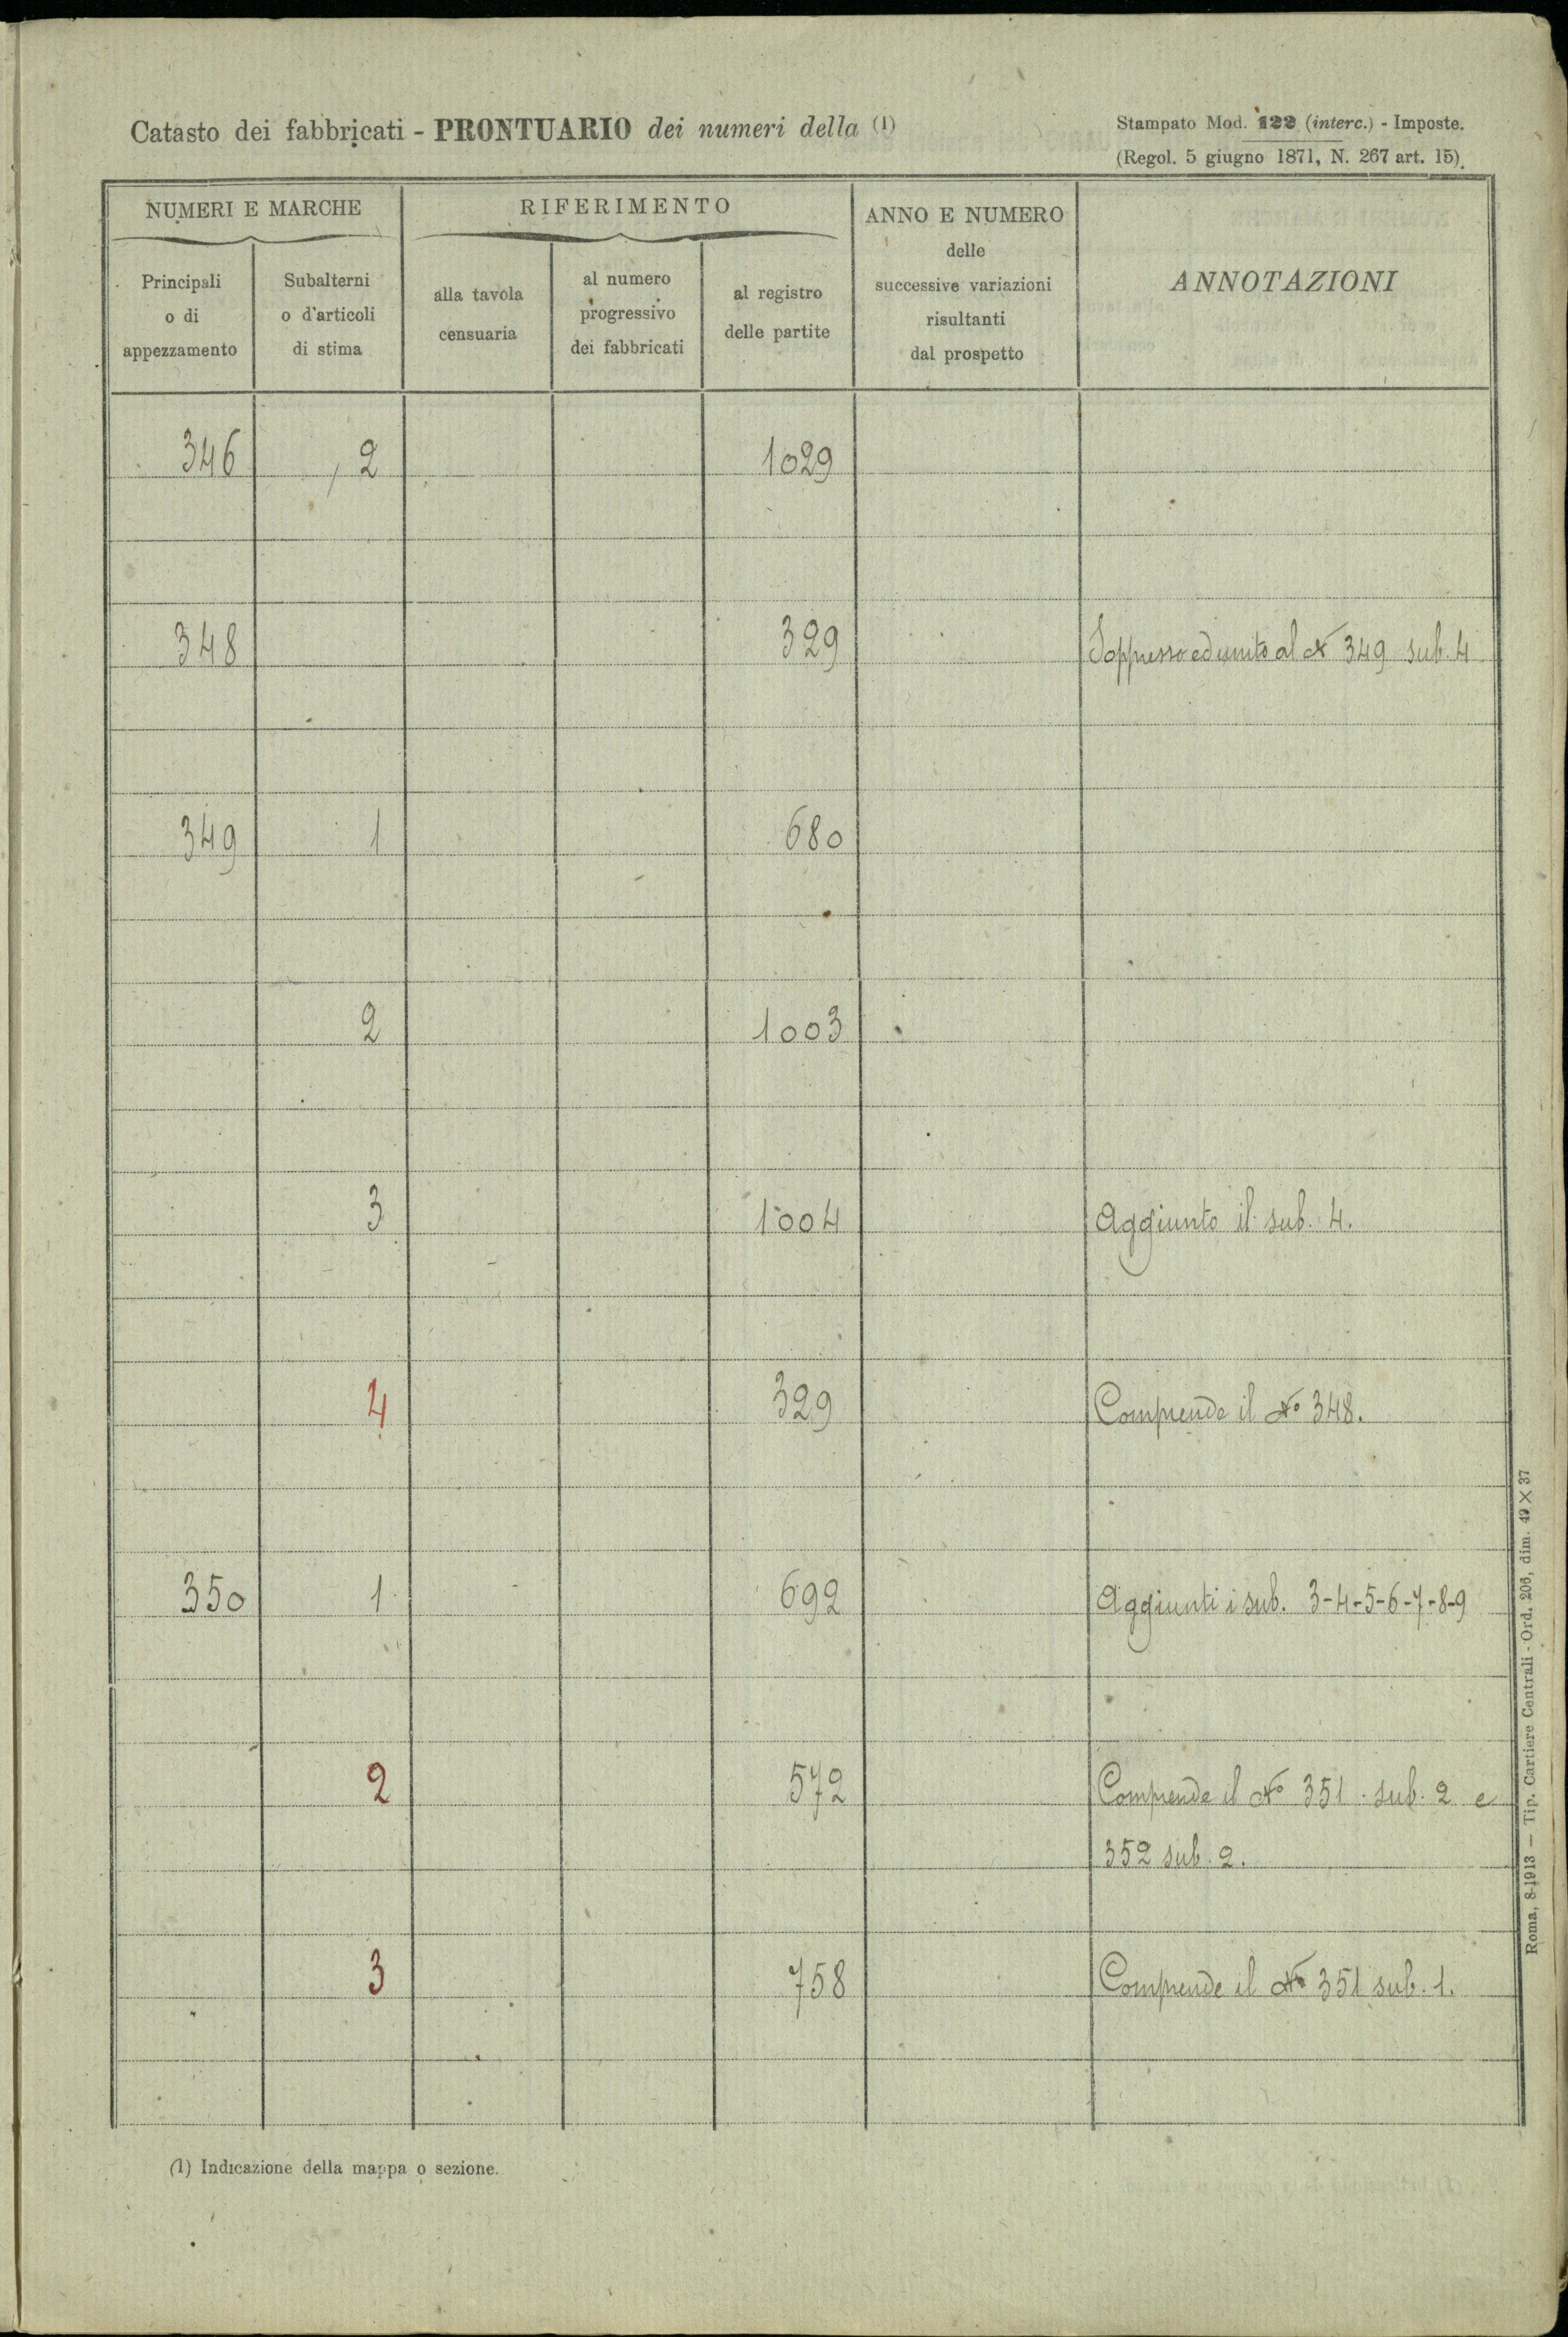 Catasto dei fabbricati - PRONTUARIO dei numeri della (1)
Stampato Mod. 122 (interc.) - Imposte.
(Regol. 5 giugno 1871, N. 267 art. 15).
NUMERI E MARCHE
RIFERIMENTO
ANNO E NUMERO
delle
successive variazioni
risultanti
dal prospetto
ANNOTAZIONI
Principali
o di
appezzamento
Subalterni
o d'articoli
di stima
alla tavola
censuaria
al numero
progressivo
dei fabbricati
al registro
delle partite
346 2 1029
348 329 Soppresso ed unito al N 349 sub. 4
349 1 680
2 1003
3 1004 Aggiunto il sub. 4.
4 329 Comprende il No 348.
350 1 692 Aggiunti i sub. 3-4-5-6-7-8-9
2 572 Comprende il No 351 sub. 2 e
352 sub. 2.
3 758 Comprende il No 351 sub. 1.
(1) Indicazione della mappa o sezione.
Roma, 8-1913 — Tip. Cartiere Centrali - Ord. 206, dim. 49 × 37